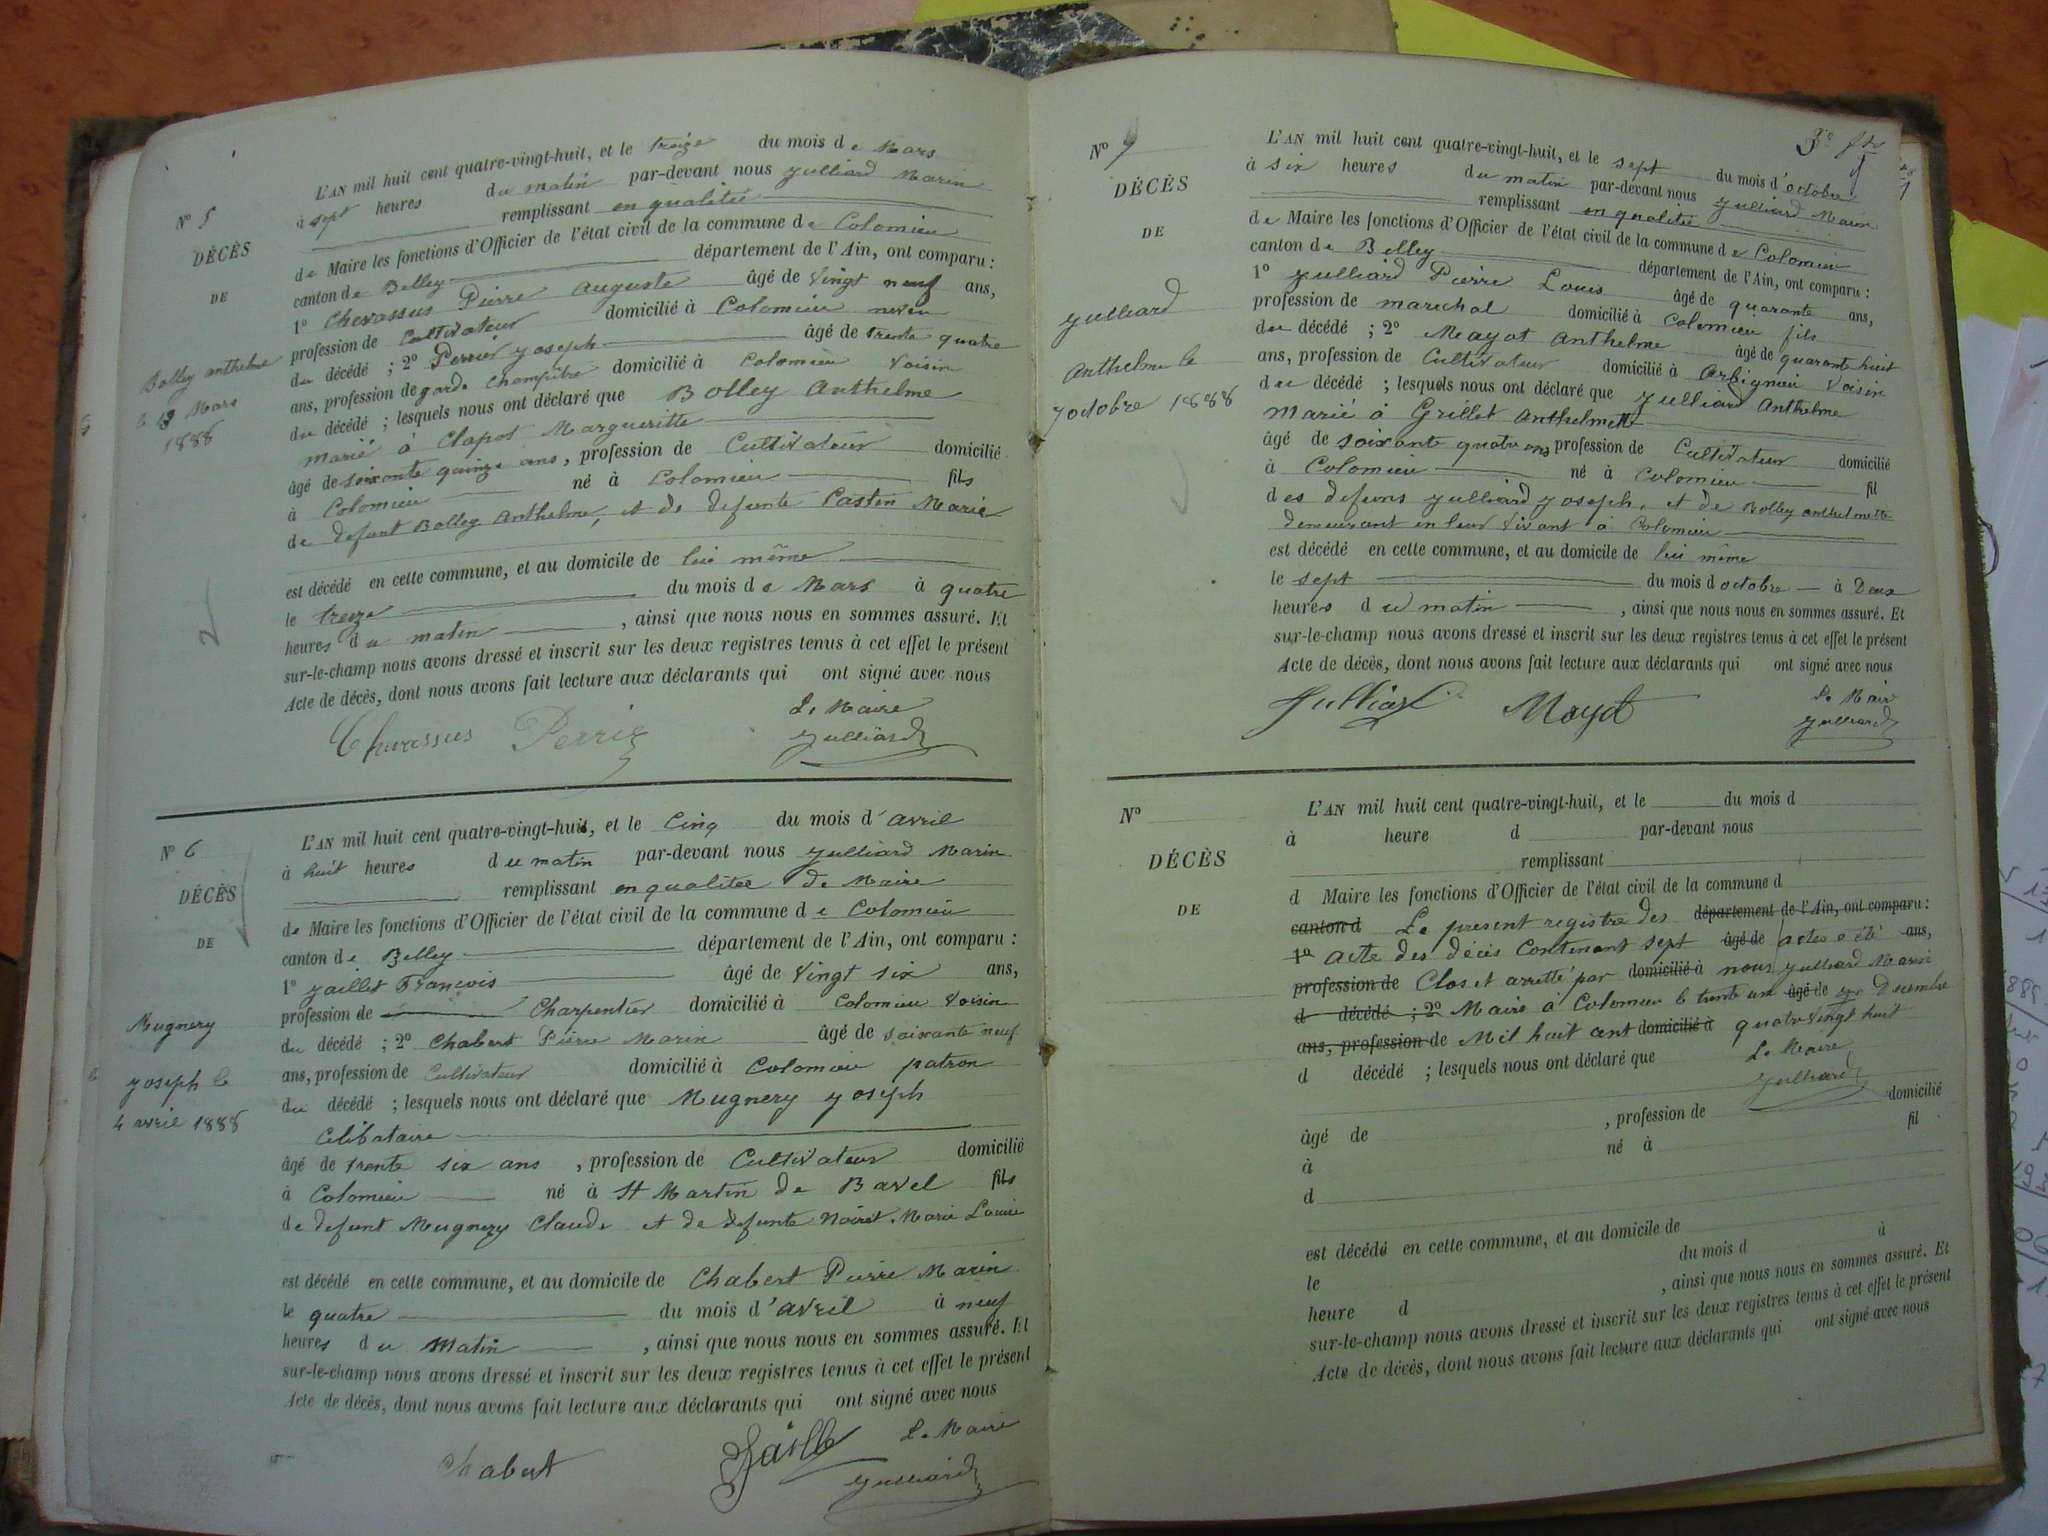 N° 5
DÉCÈS
DE
Bolley anthelme
le 13 Mars
1888
L'AN mil huit cent quatre-vingt-huit, et le treize du mois de Mars
à sept heures du matin par-devant nous Julliard Marin
remplissant en qualitée
de Maire les fonctions d'Officier de l'état civil de la commune de Colomieu
canton de Belley département de l'Ain, ont comparu :
1° Chevassus Pierre Auguste âgé de Vingt neuf ans,
profession de Cultivateur domicilié à Colomieu neveu
du décédé ; 2° Perrier Joseph âgé de trente quatre
ans, profession de garde Champêtre domicilié à Colomieu Voisin
du décédé ; lesquels nous ont déclaré que Bolley Anthelme
marié à Clapot Margueritte
âgé de soixante quinze ans, profession de Cultivateur domicilié
à Colomieu né à Colomieu fils
de defunt Bolley Anthelme, et de defunte Castin Marie
est décédé en cette commune, et au domicile de lui même
le treize du mois de Mars à quatre
heures du matin, ainsi que nous nous en sommes assuré. Et
sur-le-champ nous avons dressé et inscrit sur les deux registres tenus à cet effet le présent
Acte de décès, dont nous avons fait lecture aux déclarants qui ont signé avec nous
Le Maire
Chevassus Perrier Julliard
N° 6
DÉCÈS
DE
Mugnery
Joseph le
4 avril 1888
L'AN mil huit cent quatre-vingt-huit, et le Cinq du mois d'avril
à huit heures du matin par-devant nous Julliard Marin
remplissant en qualitée de Maire
de Maire les fonctions d'Officier de l'état civil de la commune de Colomieu
canton de Belley département de l'Ain, ont comparu :
1° Jaillet François âgé de Vingt six ans,
profession de Charpentier domicilié à Colomieu Voisin
du décédé ; 2° Chabert Pierre Marin âgé de soixante neuf
ans, profession de Cultivateur domicilié à Colomieu patron
du décédé ; lesquels nous ont déclaré que Mugnery Joseph
Célibataire
âgé de trente six ans, profession de Cultivateur domicilié
à Colomieu né à St Martin de Bavel fils
de defunt Mugnery Claude et de defunte Noiret Marie Louise
est décédé en cette commune, et au domicile de Chabert Pierre Marin
le quatre du mois d'avril à neuf
heures du Matin, ainsi que nous nous en sommes assuré. Et
sur-le-champ nous avons dressé et inscrit sur les deux registres tenus à cet effet le présent
Acte de décès, dont nous avons fait lecture aux déclarants qui ont signé avec nous
Le Maire
Chabert Jaillet Julliard
N°
DÉCÈS
DE
Julliard
Anthelme le
7 octobre 1888
L'AN mil huit cent quatre-vingt-huit, et le sept du mois d'octobre
à six heures du matin par-devant nous Julliard Marin
remplissant en qualitée
de Maire les fonctions d'Officier de l'état civil de la commune de Colomieu
canton de Belley département de l'Ain, ont comparu :
1° Julliard Pierre Louis âgé de quarante ans,
profession de marechal domicilié à Colomieu fils
du décédé ; 2° Mayot Anthelme âgé de quarante huit
ans, profession de Cultivateur domicilié à Arbignieu Voisin
du décédé ; lesquels nous ont déclaré que Julliard Anthelme
Marié à Grillet Anthelmette
âgé de soixante quatre ans profession de Cultivateur domicilié
à Colomieu né à Colomieu fil
des defuns Julliard Joseph, et de Bolley anthelmette
demeurant en leur Vivant à Colomieu
est décédé en cette commune, et au domicile de lui même
le sept du mois d'octobre à Deux
heures du matin, ainsi que nous nous en sommes assuré. Et
sur-le-champ nous avons dressé et inscrit sur les deux registres tenus à cet effet le présent
Acte de décès, dont nous avons fait lecture aux déclarants qui ont signé avec nous
Le Maire
Julliard Mayot Julliard
N°
DÉCÈS
DE
L'AN mil huit cent quatre-vingt-huit, et le du mois d
à heure d par-devant nous
remplissant
d Maire les fonctions d'Officier de l'état civil de la commune d
canton d Le present registre des département de l'Ain, ont comparu :
1° acte des décès Contenant sept âgé de actes a été ans,
profession de Clos et arretté par domicilié à nous Julliard Marin
d décédé ; 2° Maire à Colomieu le trente un âgé de Decembre
ans, profession de Mil huit cent domicilié à quatre Vingt huit
d décédé ; lesquels nous ont déclaré que Le Maire
Julliard
âgé de , profession de domicilié
à né à fil
d
est décédé en cette commune, et au domicile de
le du mois d à
heure d , ainsi que nous nous en sommes assuré. Et
sur-le-champ nous avons dressé et inscrit sur les deux registres tenus à cet effet le présent
Acte de décès, dont nous avons fait lecture aux déclarants qui ont signé avec nous